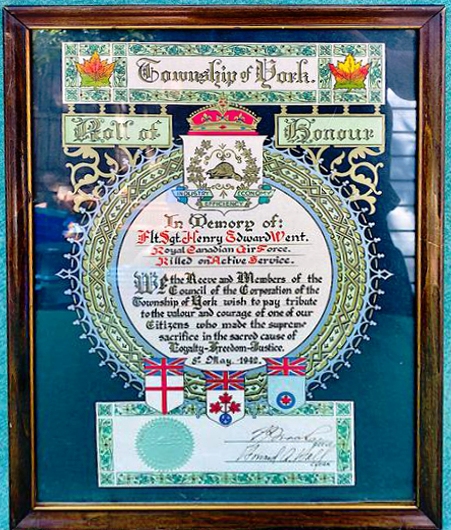 Township of York.
Roll of Honour
INDUSTRY ECONOMY
EFFICIENCY
In Memory of:
Flt Sgt. Henry Edward Went.
Royal Canadian Air Force.
Killed on Active Service.
We the Reeve and Members of the
Council of the Corporation of the
Township of York wish to pay tribute
to the valour and courage of one of our
Citizens who made the supreme
sacrifice in the sacred cause of
Loyalty-Freedom-Justice.
May.
Reeve
Clerk